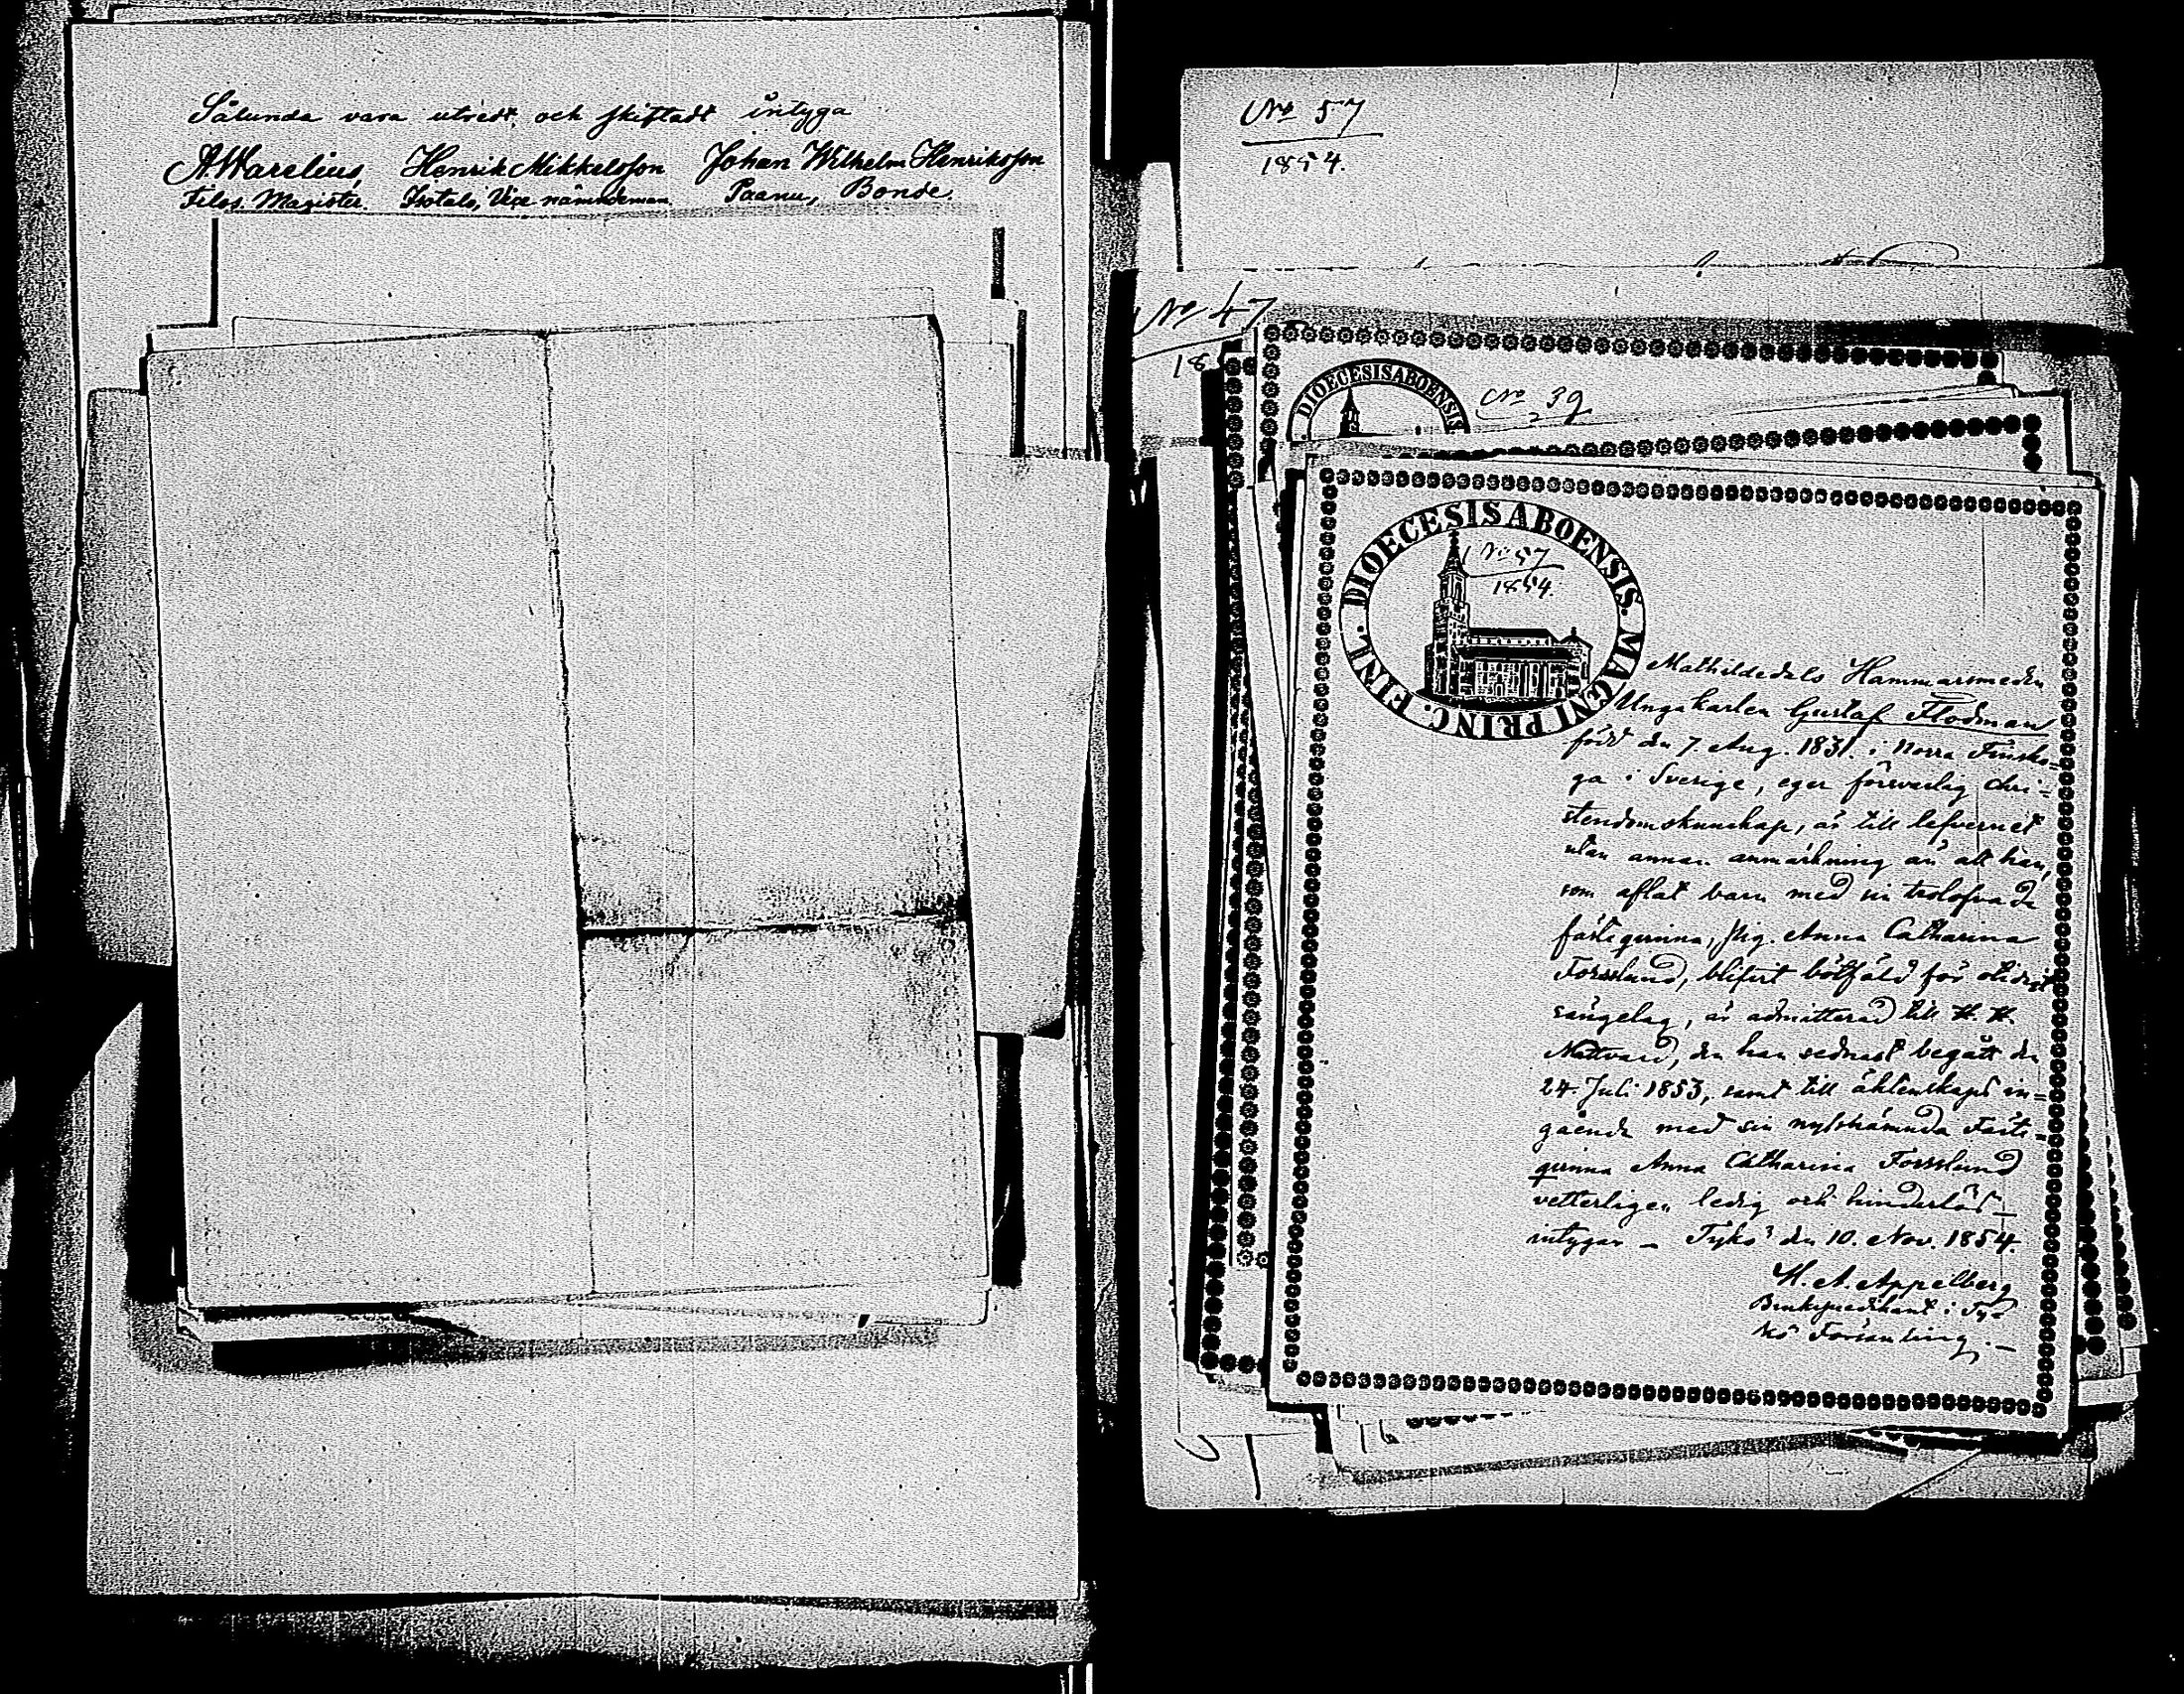 Sålunda vara utredt och skiftadt intyga
A Warelius Henrik Mikkelsson Johan Wilhelm Henriksson
Filos. Magister. Isotalo, Vice nämndeman. Paanu, Bonde.
No 57
1854.
No 47
18
DIOECESIS ABOENSIS
No 39
DIOECESIS ABOENSIS. MAGNI PRINC. FINL.
No 57
1854.
Mathildedals Hammarsmeden
Ungkarlen Gustaf Flodman
född den 7. Aug. 1831. i Norra Finsko-
ga i Sverige, eger förswarlig chri-
stendomskunskap, är till lefvernet
utan annan anmärkning än att han,
som aflat barn med sin trolofvade
fästeqvinna, Pig. Anna Catharina
Forsslund, blifvit bötfäld för otidigt
sängelag, är admitterad till H. H.
Nattvard, den han sednast begått den
24. Juli 1853, samt till äktenskaps in-
gående med sin nyssnämnda Fäste-
qvinna Anna Catharina Forsslund
vetterligen ledig och hinderlös –
intygar – Tykö den 10. Nov. 1854.
H. A. Appelberg
Brukspredikant i Ty-
kö Församling. –